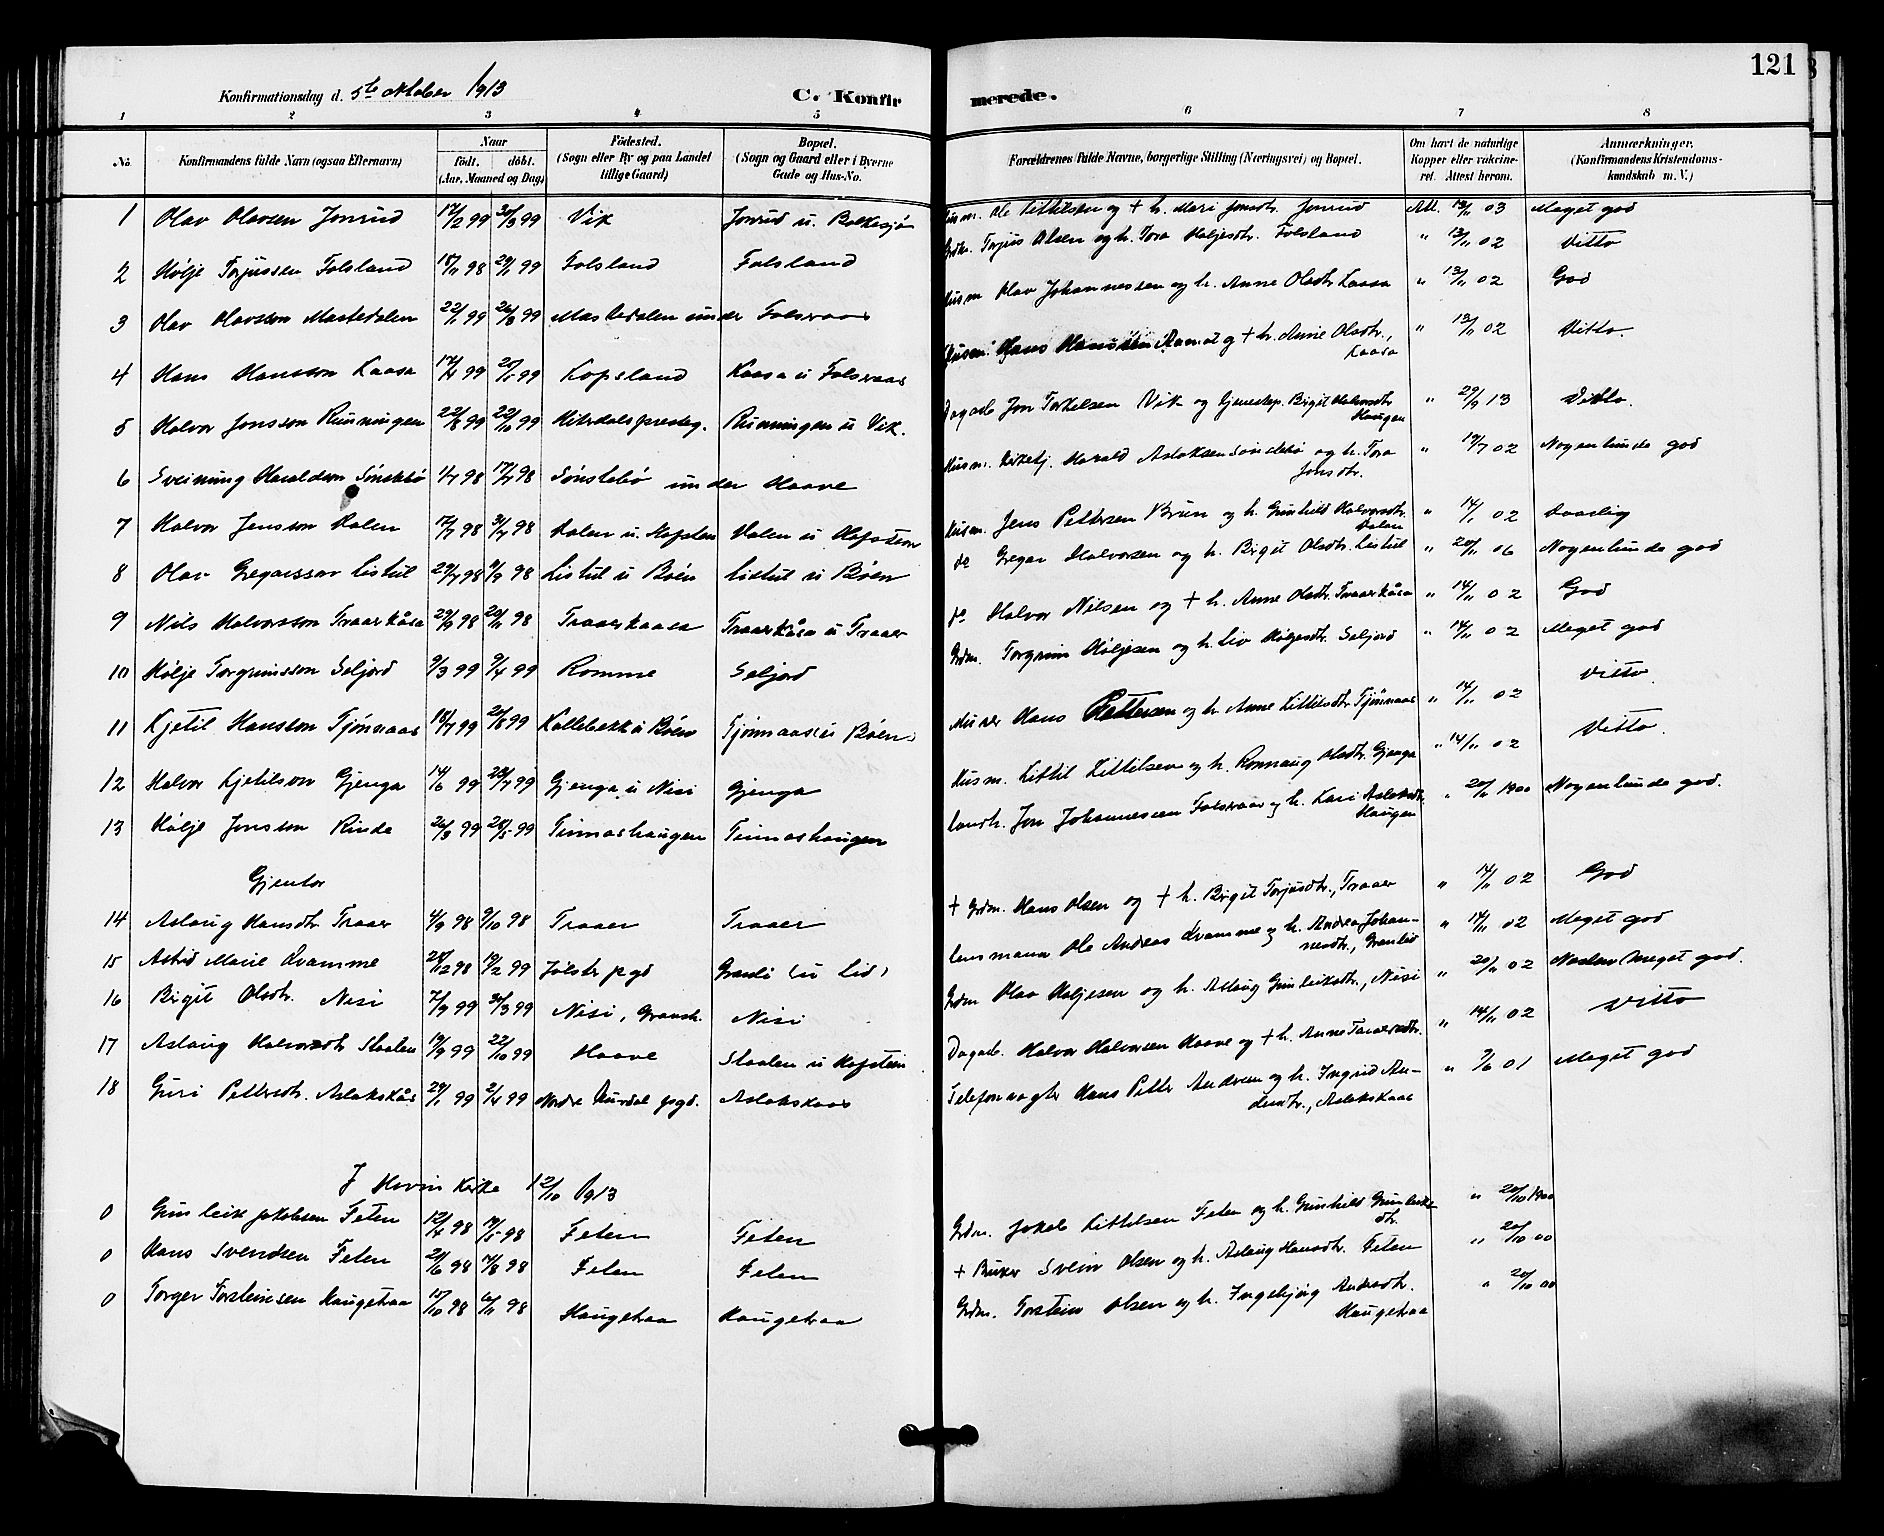 121
Konfirmationsdag d. 5te oktober 1913 C. Konfirmerede.
1 2 3 4 5 6 7 8
No. Konfirmandens fulde Navn (ogsaa Efternavn) Naar født. døbt. (Aar, Maaned og Dag) Fødested. (Sogn eller By og paa Landet tillige Gaard) Bopæl. (Sogn og Gaard eller i Byerne Gade og Hus-No. Forældrenes fulde Navne, borgerlige Stilling (Næringsvei) og Bopæl. Om havt de naturlige Kopper eller vaccineret. Attest herom. Anmærkninger. (Konfirmandens Kristendomskundskab m. V.)
1 Olav Olavsen Jonrud 17/2 99 31/3 99 Vik Jonrud u. Bolkesjø Husm. Ole Kittilsen og + h. Mari Jonsdtr. Jonrud Att. 03 Meget god
2 Hølje Torjussen Folsland 98 29/1 99 Folsland Folsland Grdbr. Torjus Olsen og h. Tora Høljesdtr. Folsland " 13/11 02 Ditto
3 Olav Olavsson Mastedalen 22/1 99 26/3 99 Mastedalen under Folseraas Husm Olav Johannessen og h. Anne Olsdtr. Kaasa " 13/11 02 God
4 Hans Hansson Kaasa 17/4 99 99 Kopsland Kaasa u Folseraas Husm. Hans Hansen og + h. Anne Olsdtr., Kaasa " 13/11 02 Ditto.
5 Halvor Jonsson Runningen 22/8 99 22/10 99 Hitterdals presteg. Runningen u Vik. Dagarb Jon Torkelsen Vik og Gjenestep. Birgit Halvorsdtr Haugen " 29/9 13 Ditto.
6 Sveinung Haraldson Sønstebø 1/7 98 17/7 98 Sønstebø under Haave Husm. Kirketj. Harald Aslaksen Sønstebø og h. Tora Jonsdtr. " 02 Nogenlunde god
7 Halvor Jensson Dalen 17/7 98 31/7 98 Dalen u. Hofsten Dalen u Hofsten Husm. Jens Pettersen Brun og h. Gunhild Halvorsdtr Dalen " 14/1 02 Daarlig
8 Olav Gregarsson Listul 29/7 98 98 Listul u Bøen Listul u Bøen do Gregar Halvorsen og h. Birgit Olsdtr. Listul " 20/11 06 Nogenlunde god
9 Nils Halvorsson Traaerkåsa 29/9 98 20/11 98 Traaerkaasa Traaerkåsa u Traaer do Halvor Nilsen og + h. Anne Olsdtr. Traaerkåsa " 14/11 02 God
10 Hølje Torgrimsson Seljord 9/3 99 9/4 99 Romme Seljord Grdm. Torgrim Høljesen og h. Liv Høljesdtr. Seljord " 14/11 02 Meget god
11 Kjetil Hansson Tjønnaas 99 20/8 99 Kollebekk u Bøen Tjønnaas (u Bøen) Murer Hans Pettersen og h. Anne Kittilsdtr Tjønnaas " 14/11 02 Ditto
12 Halvor Kjetilson Gjenga 14/6 99 23/7 99 Gjenga u Nisi Gjenga Husm. Kittil Kittilsen og h. Rønnaug Olsdtr. Gjenga " 14/11 02 Ditto.
13 Hølje Jonsson Rinde 26/3 99 28/5 99 Tinnoshaugen Tinnoshaugen Landh. Jon Johannessen Folseraas og h. Kari Aslaksdtr. Haugen " 20/11 1900 Nogenlunde god.
Gjentor
14 Aslaug Hansdtr. Traaer 4/9 98 9/10 98 Traaer Traaer + Grdm. Hans Olsen og + h. Birgit Torjusdtr., Traaer " 14/11 02 God
15 Astrid Marie Kvamme 28/12 98 19/2 99 Jølster pgd Granli (u Lid) Lensmann Ole Andreas Kvamme og h. Andrea Johannesdtr., Granlid " 14/11 02 Meget god
16 Birgit Olsdtr. Nisi 99 31/3 99 Nisi, Gransh. Nisi Grdm Olav Høljesen og h. Aslaug Gunleiksdtr., Nisi " 20/11 02 Næsten meget god.
17 Aslaug Halvorsdtr Staalen 19/9 99 22/10 99 Haave Staalen u Hofstein Dagarb. Halvor Halvorsen Haave og + h. Anne Taraldsdtr. " 14/11 02 Ditto
18 Guri Pettersdtr. Aslakskås 29/1 99 2/4 99 Nordre Aurdal pgd. Aslakskaas Telefonvagter Hans Petter Andersen og h. Ingrid Andersdtr., Aslakskaas " 01 Meget god
I Hovin Kirke 12/10 1913
0 Gunleik Jakobsen Feten 12/4 98 98 Feten Feten Grdm. Jakob Kittilsen Feten og h. Gunhild Gunleiksdtr. " 20/10 1900
0 Hans Svendsen Feten 21/6 98 14/8 98 Feten Feten + Bruker Svein Olsen og h. Aslaug Hansdtr. Feten " 20/10 00
0 Torger Torsteinsen Haugetraa 98 98 Haugetraa Haugetraa Grdm. Torstein Olsen og h. Ingebjørg Andersdtr. Haugetraa " 20/10 00